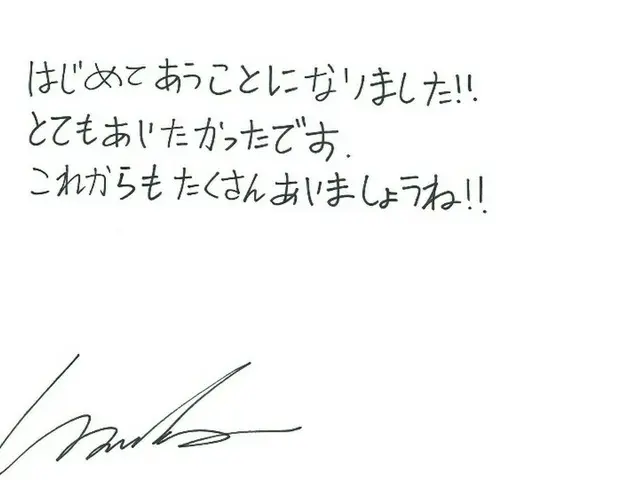 はじめてあうことになりました!!
とてもあいたかったです.
これからもたくさんあいましょうね!!